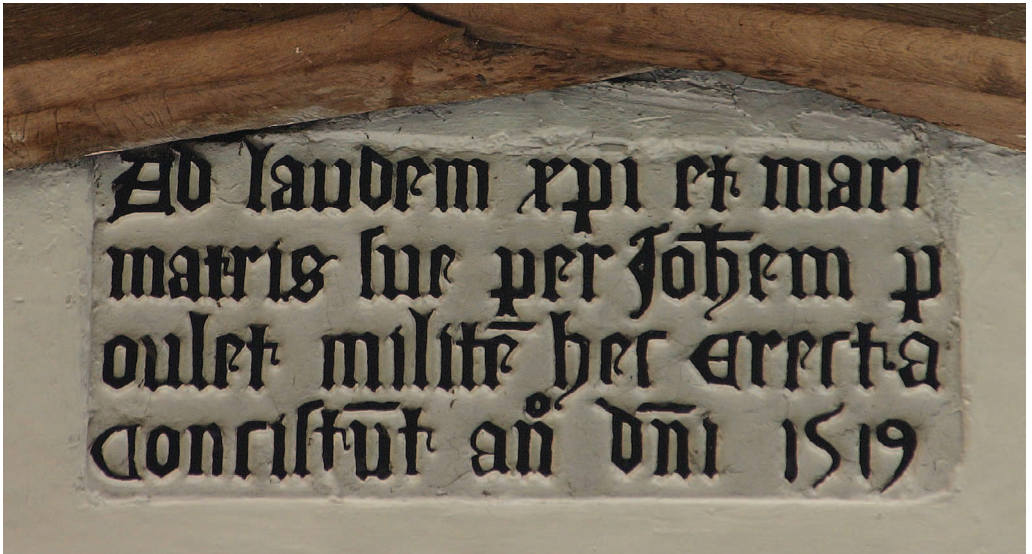 Ad laudem xpi et mari
matris sue per Joħem p
oulet militē hec Erecta
Conciſtūt an̊ dn̄i 1519